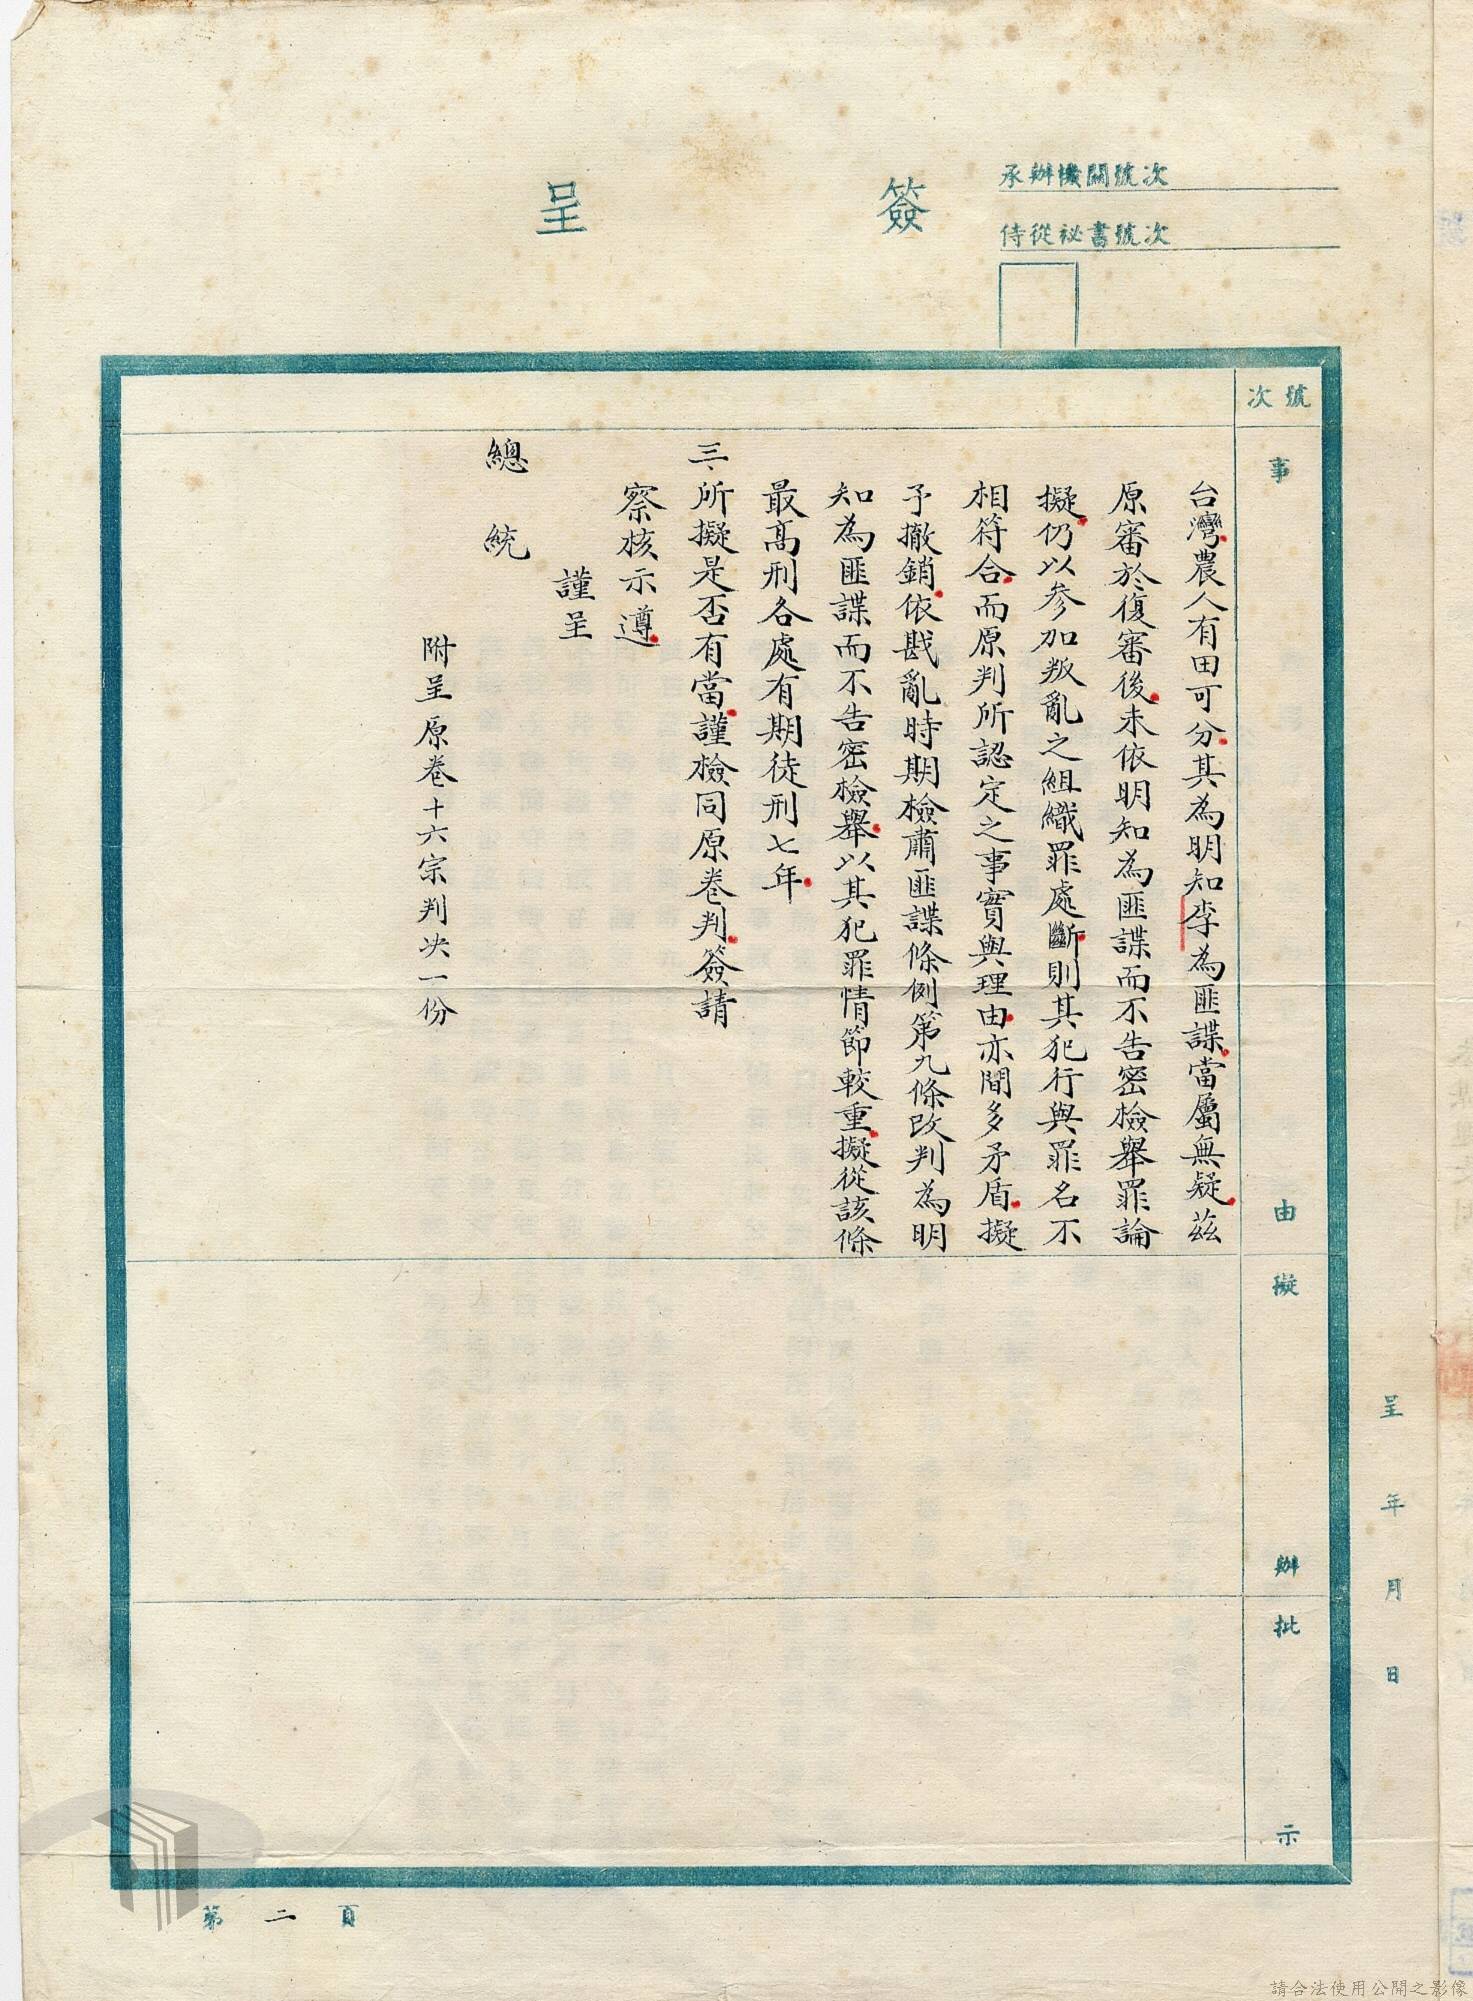 簽呈
承辦機關號次
侍從祕書號次
號次
事由
擬辦
批示
台灣農人有田可分其為明知李為匪諜當屬無疑茲
原審於復審後未依明知為匪諜而不告密檢舉罪論
擬仍以參加叛亂之組織罪處斷則其犯行與罪名不
相符合而原判所認定之事實與理由亦間多矛盾擬
予撤銷依戡亂時期檢肅匪諜條例第九條改判為明
知為匪諜而不告密檢舉以其犯罪情節較重擬從該條
最高刑各處有期徒刑七年
三、所擬是否有當謹檢同原卷判簽請
察核示遵
謹呈
總統
附呈原卷十六宗判決一份
呈年月日
第二頁
請合法使用公開之影像